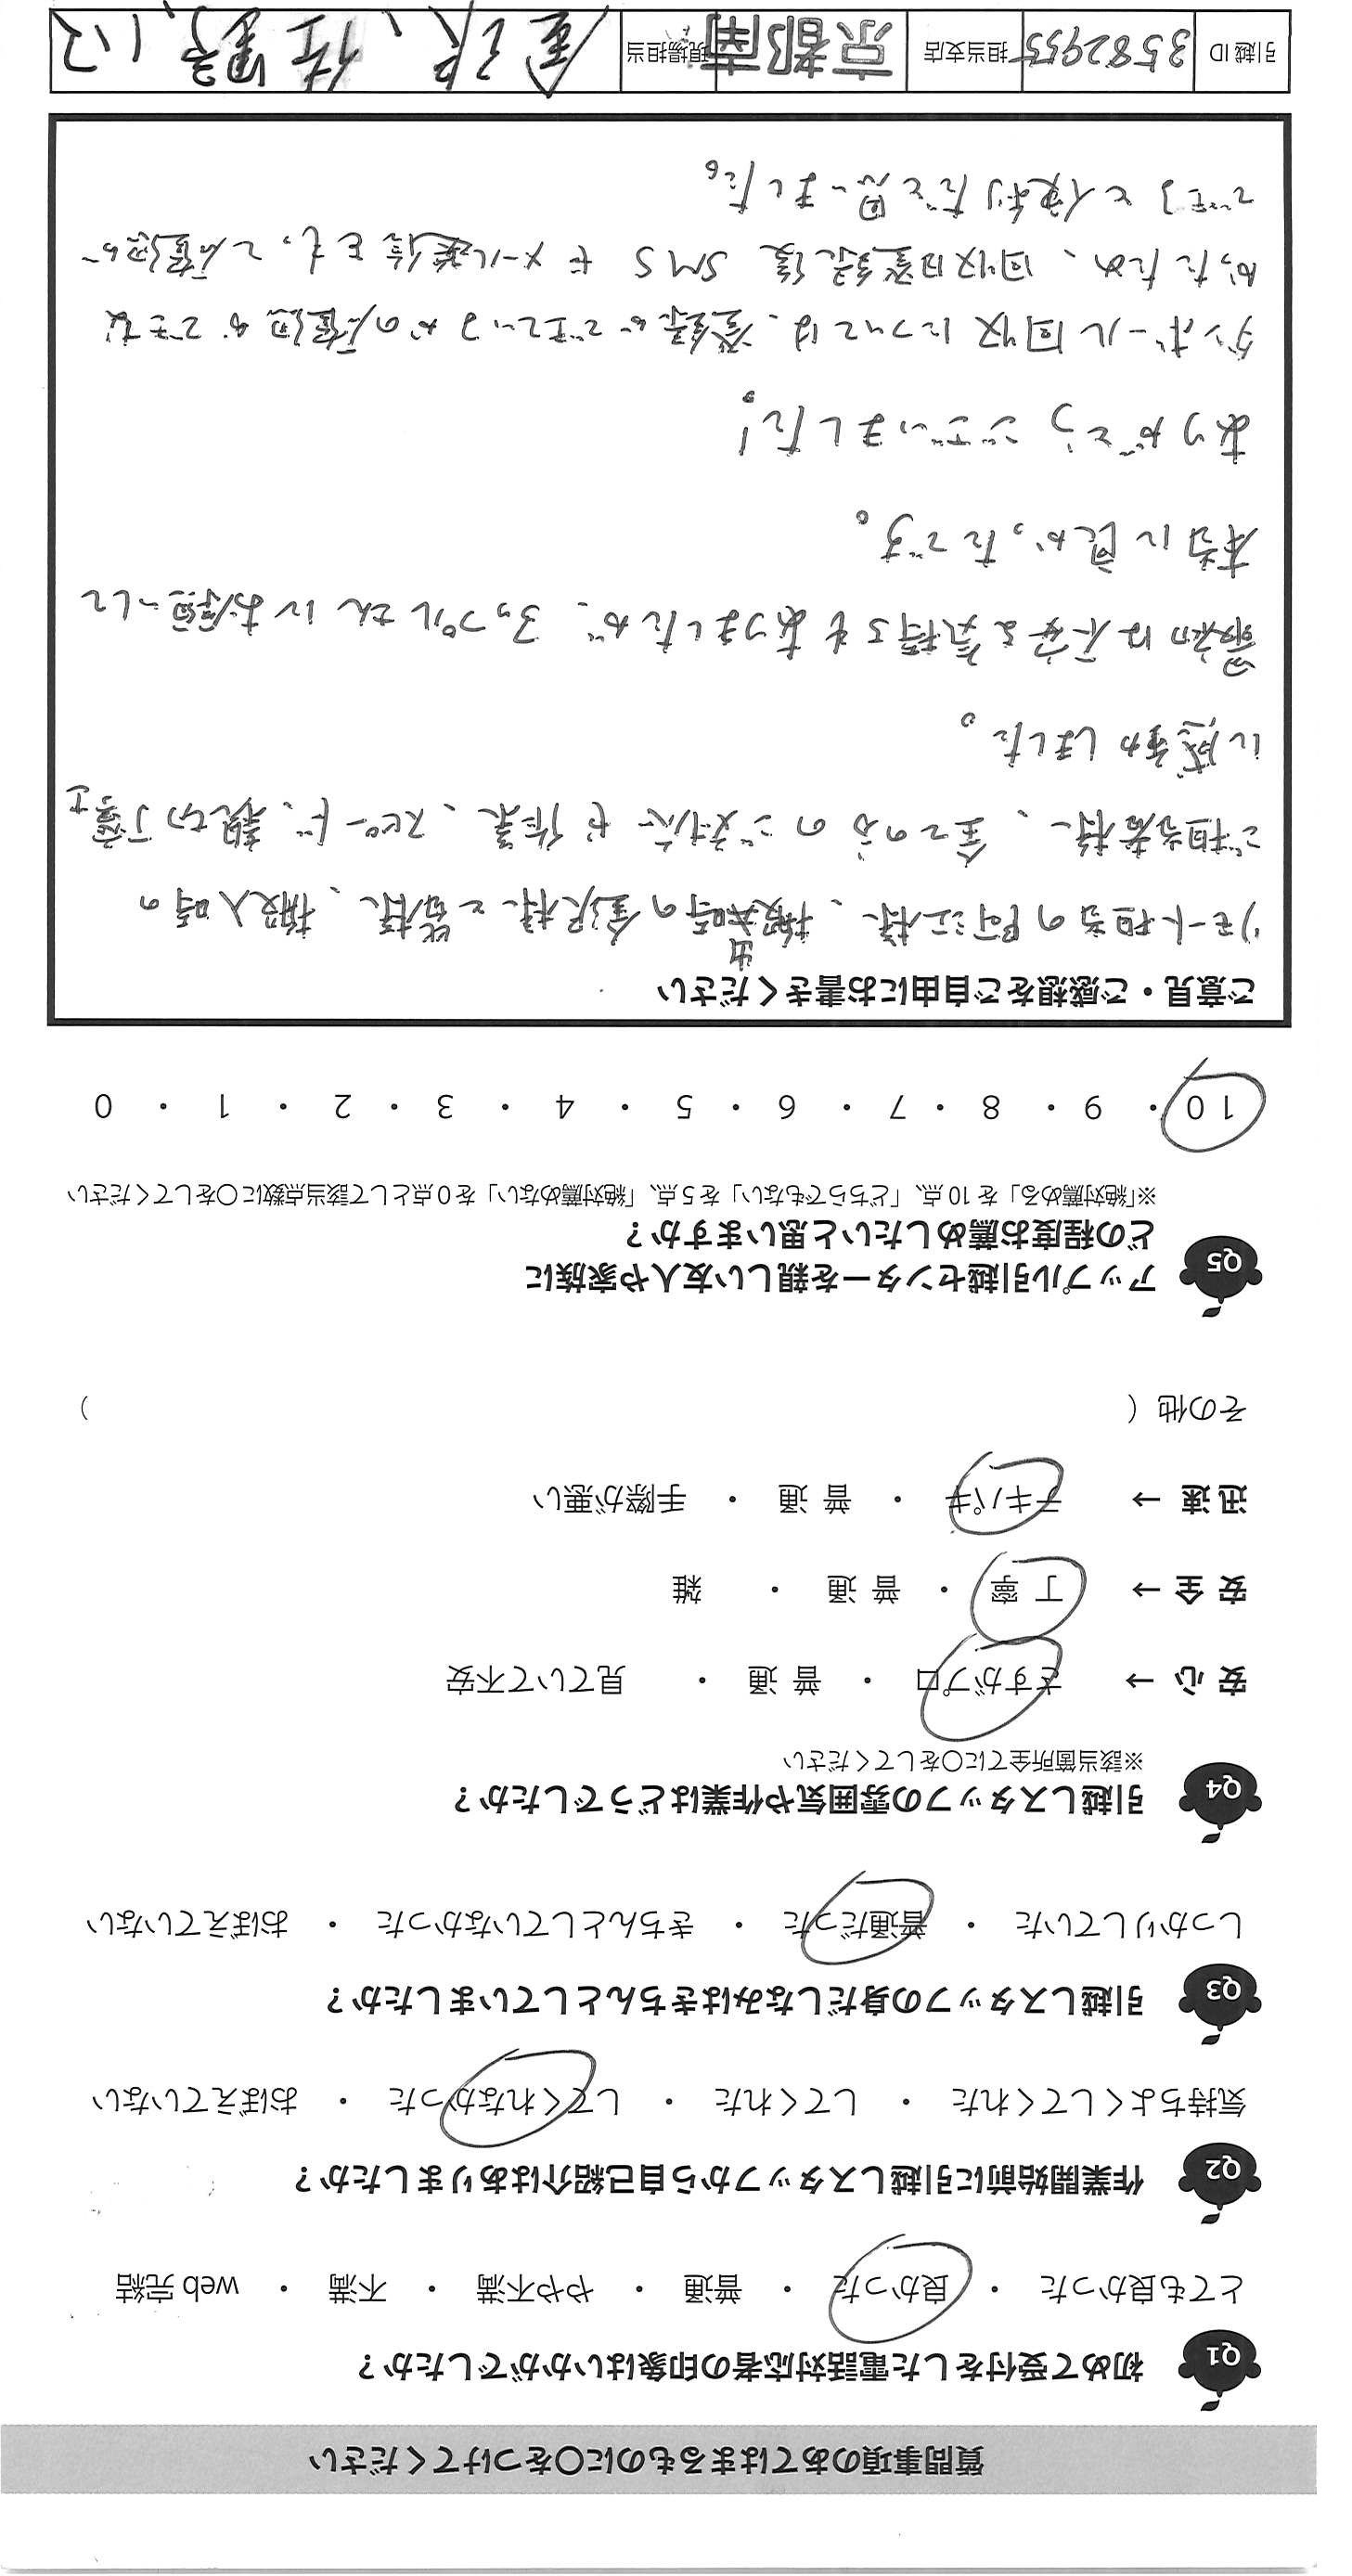 質問事項のあてはまるものに○をつけてください
Q1 初めて受付をした電話対応者の印象はいかがでしたか？
とても良かった ・ 良かった ・ 普通 ・ やや不満 ・ 不満 ・ web 完結
Q2 作業開始前に引越しスタッフから自己紹介はありましたか？
気持ちよくしてくれた ・ してくれた ・ してくれなかった ・ おぼえていない
Q3 引越しスタッフの身だしなみはきちんとしていましたか？
しっかりしていた ・ 普通だった ・ きちんとしていなかった ・ おぼえていない
Q4 引越しスタッフの雰囲気や作業はどうでしたか？
※該当箇所全てに○をしてください
安 心 → さすがプロ ・ 普 通 ・ 見ていて不安
安 全 → 丁 寧 ・ 普 通 ・ 雑
迅 速 → テキパキ ・ 普 通 ・ 手際が悪い
その他（ ）
Q5 アップル引越センターを親しい友人や家族に
どの程度お薦めしたいと思いますか？
※「絶対薦める」を 10 点、「どちらでもない」を 5 点、「絶対薦めない」を 0 点として該当点数に○をしてください
10 ・ 9 ・ 8 ・ 7 ・ 6 ・ 5 ・ 4 ・ 3 ・ 2 ・ 1 ・ 0
ご意見・ご感想をご自由にお書きください
リモート担当の阿江様、搬出時の金沢様と皆様、搬入時の
ご担当者様、全ての方のご対応や作業、スピード、親切丁寧さ
に感動しました。
最初は不安な気持ちもありましたが、アップルさんにお願いして
本当に良かったです。
ありがとうございました！
ダンボール回収については、登録ができているかの確認ができな
かったため、回収日登録後 SMS やメール送信をもって確認が
できると便利だと思いました。
引越 ID 3582955 担当支店 京都南 現場担当 金沢、佐野、